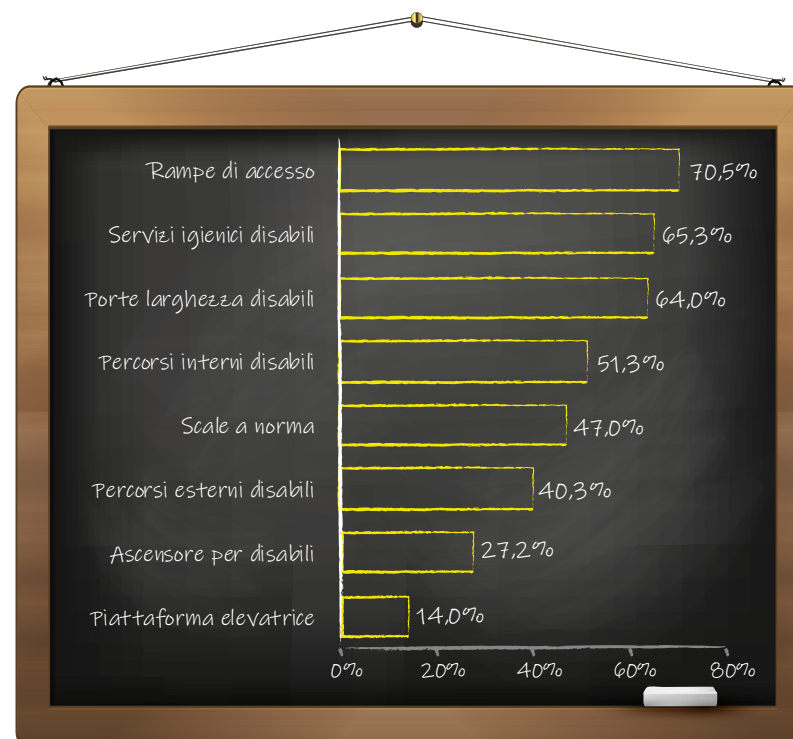 Rampe di accesso 70,5%
Servizi igienici disabili 65,3%
Porte larghezza disabili 64,0%
Percorsi interni disabili 51,3%
Scale a norma 47,0%
Percorsi esterni disabili 40,3%
Ascensore per disabili 27,2%
Piattaforma elevatrice 14,0%
0% 20% 40% 60% 80%